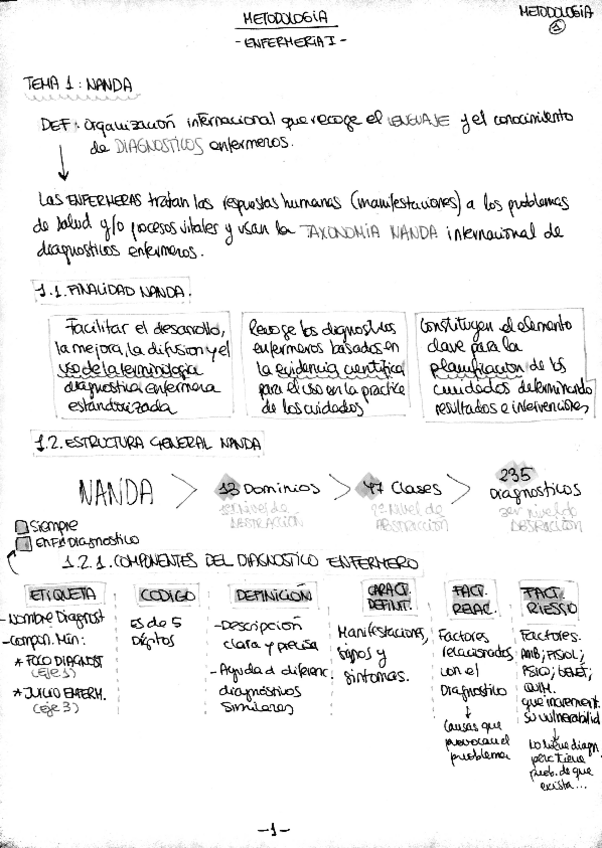 METODOLOGÍA
METODOLOGÍA
1
- ENFERMERIA I -
TEMA 1: NANDA
DEF: Organización internacional que recoge el LENGUAJE y el conocimiento
de DIAGNOSTICOS enfermeros.
Las ENFERMERAS tratan las respuestas humanas (manifestaciones) a los problemas
de salud y/o procesos vitales y usan la TAXONOMÍA NANDA internacional de
diagnosticos enfermeros.
1.1. FINALIDAD NANDA.
Facilitar el desarrollo,
la mejora, la difusion y el
uso de la terminologia
diagnostica enfermera
estandarizada
Recoge los diagnosticos
enfermeros basados en
la evidencia cientifica
para el uso en la practica
de los cuidados
Constituyen el elemento
clave para la
planificación de los
cuidados determinando
resultados e intervenciones
1.2. ESTRUCTURA GENERAL NANDA
NANDA > 13 Dominios > 47 Clases > 235 Diagnosticos
1er Nivel de
ABSTRACCIÓN
2º Nivel de
ABSTRACCION
3er nivel de
ABSTRACCION
Siempre
Enf. Diagnostico
1.2.1. COMPONENTES DEL DIAGNOSTICO ENFERMERO
ETIQUETA
- Nombre Diagnost
- Compon. Min:
* FOCO DIAGNOST
(Eje 1)
* JUICIO ENFERM.
(eje 3)
CODIGO
es de 5
Dígitos
DEFINICIÓN
- Descripción
clara y precisa
- Ayuda a diferenc.
diagnósticos
similares
CARACT.
DEFINIT.
Manifestaciones,
signos y
sintomas.
FACT.
RELAC.
Factores
relacionados
con el
Diagnostico
Causas que
provocan el
problema
FACT.
RIESGO
Factores.
AMB; FISIOL;
PSICO; GENET;
QUIM.
que increment.
su vulnerabilid
No tiene diagn.
pero tiene
prob. de que
exista...
-1-